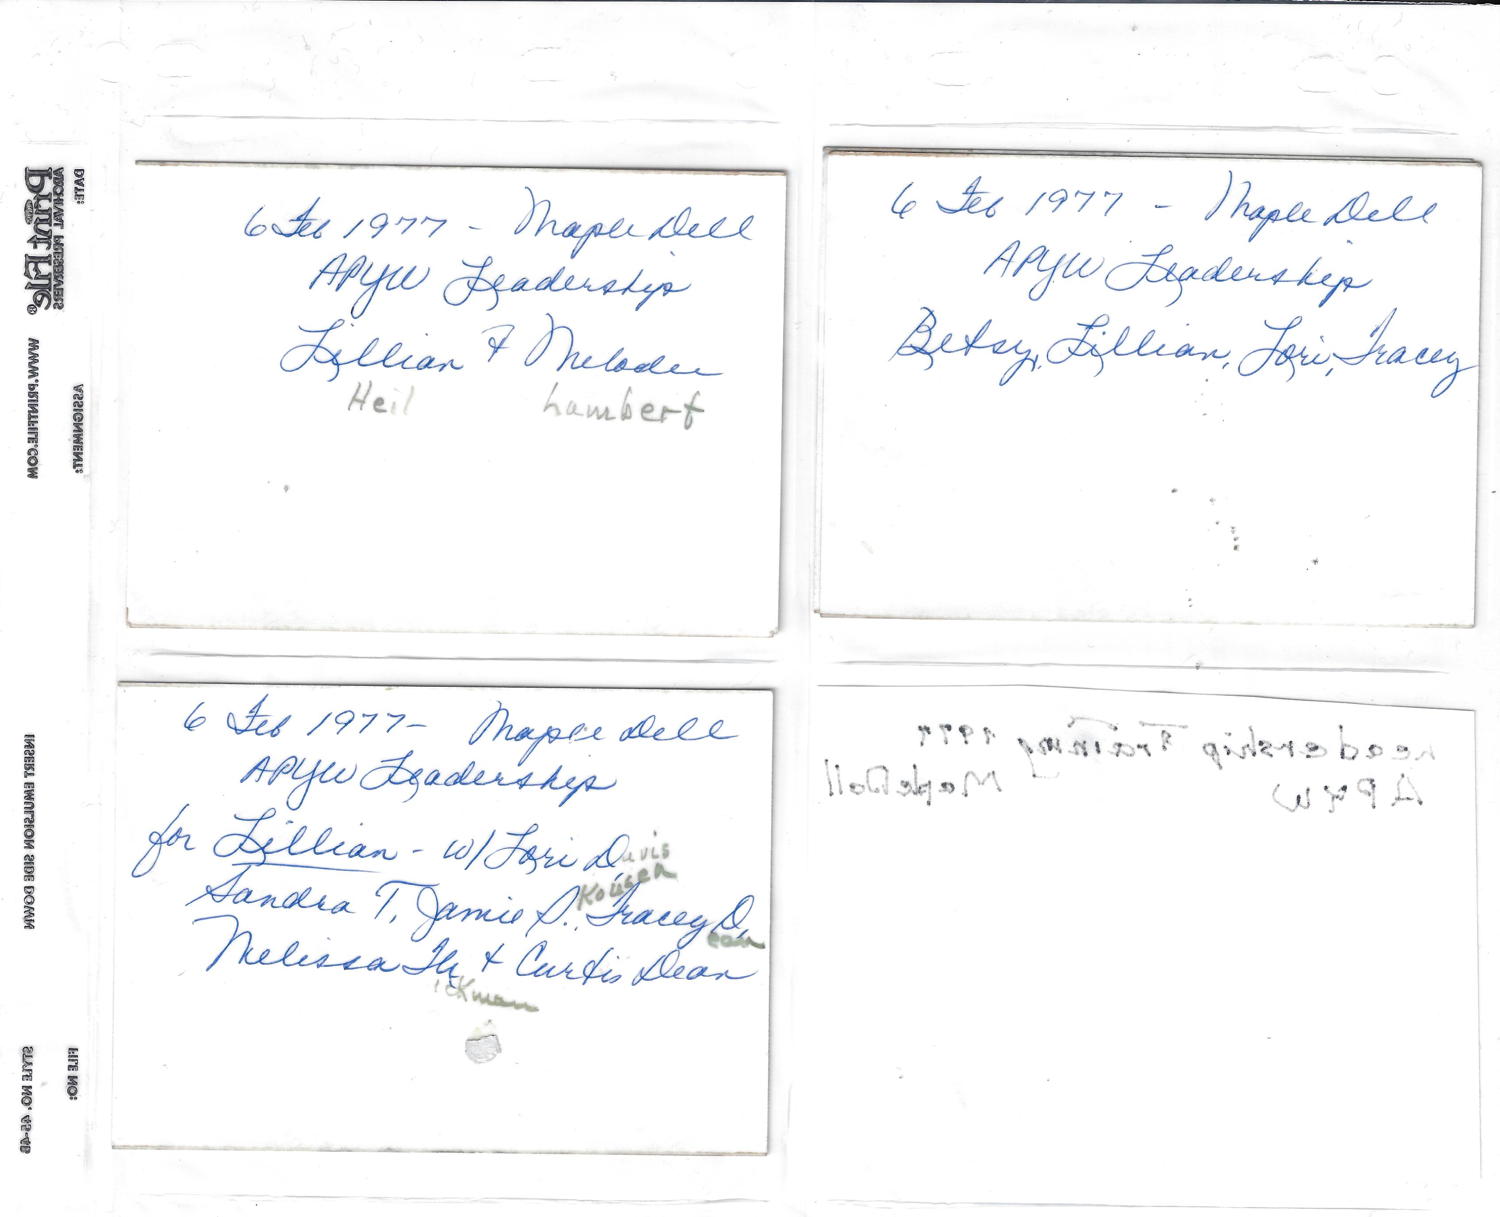 6 Feb 1977 - Maple Dell
APYW Leadership
Lillian & Melodee
Heil Lambert
6 Feb 1977 - Maple Dell
APYW Leadership
Betsy, Lillian, Lori, Tracey
6 Feb 1977 - Maple Dell
APYW Leadership
for Lillian - w/ Lori Davis
Kousen
Sandra T, Jamie P., Tracey D.
ean
Melissa Hi & Curtis Dean
ickman
Leadership Training 1977
APYW Maple Dell
DATE:
ARCHIVAL PRESERVERS
Print File®
WWW.PRINTFILE.COM
ASSIGNMENT:
INSERT EMULSION SIDE DOWN
FILE NO:
STYLE NO. 45-4B